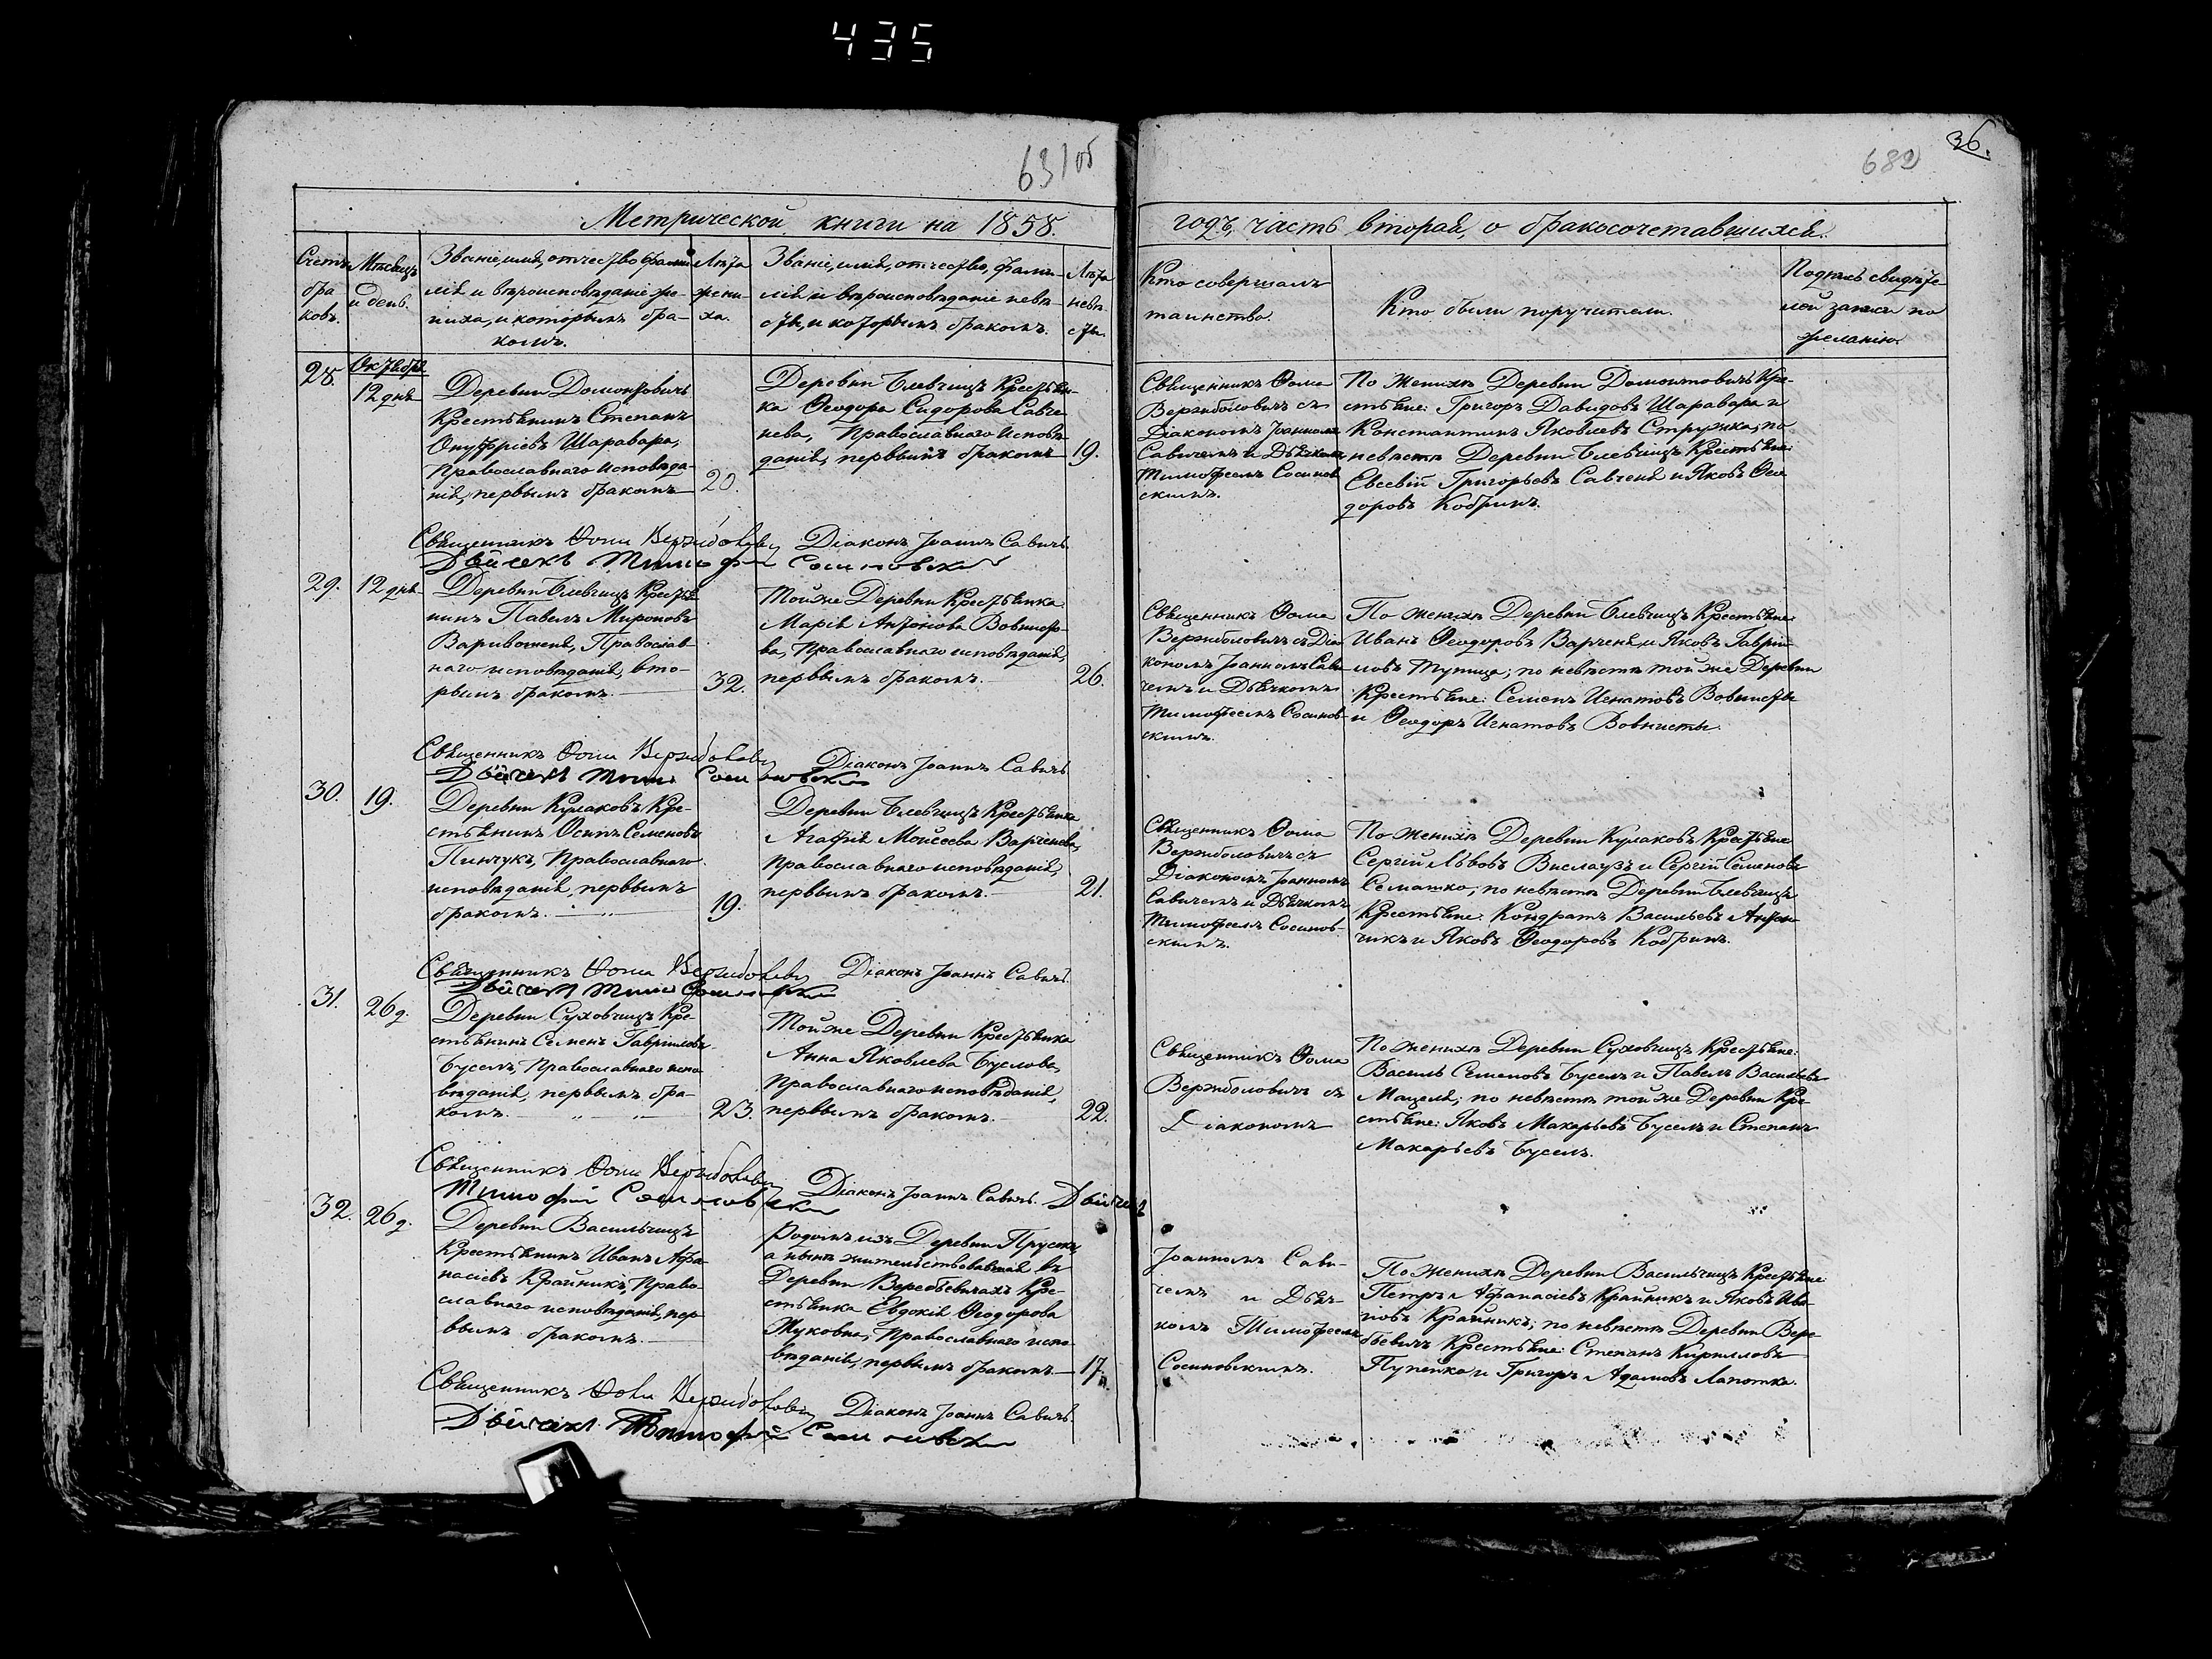 435
63 об
682
36.
Метрической книги на 1858.
годъ, часть вторая, о бракосочетавшихся.
Счетъ бра ковъ.
Мѣсяцъ и день.
Званіе, имя, отчество, фами
лія и вѣроисповѣданіе же-
ниха, и которымъ бра-
комъ.
Лѣта жени- ха.
Званіе, имя, отчество, фами-
лія и вѣроисповѣданіе невѣ-
сты, и которымъ бракомъ.
Лѣта невѣ сты.
Кто совершалъ
таинство.
Кто были поручители.
Подпись свидѣте-
лей записи по
желанію.
28.
Октября
12 дня
Деревни Домонтовичъ
Крестьянинъ Степанъ
Онуфріевъ Шаравара,
Православнаго исповѣда-
нія, первымъ бракомъ
20.
Деревни Блевчицъ Крестьян-
ка Ѳеодора Сидорова Савче
нева, Православнаго исповѣ
данія, первымъ бракомъ
19.
Священникъ Ѳома
Вержболовичъ съ
Діакономъ Іоанномъ
Савичемъ и Дьячкомъ
Тимофеемъ Сосинов
скимъ.
По женихѣ Деревни Домонтовичъ Кре-
стьяне: Григоръ Давидовъ Шаравара и
Константинъ Яковлевъ Стружка; по
невѣстѣ Деревни Блевчицъ Крестьяне:
Евсевій Григорьевъ Савченя и Яковъ Ѳео
доровъ Кобринъ.
Священникъ Ѳома Вержболович Діаконъ Іоаннъ Савичъ
Дьячекъ Тимофей Сосиновский
29.
12 дня
Деревни Блевчицъ Крестья
нинъ Павелъ Мироновъ
Варивоненя, Православ-
наго исповѣданія, вто-
рымъ бракомъ.
32.
Той же Деревни Крестьянка
Марія Антонова Вовнисто-
ва, Православнаго исповѣданія,
первымъ бракомъ.
26.
Священникъ Ѳома
Вержболовичъ съ Діа
кономъ Іоанномъ Сави
чемъ и Дьячкомъ
Тимофеемъ Сосинов-
скимъ.
По женихѣ Деревни Блевчицъ Крестьяне:
Иванъ Ѳеодоровъ Варченя и Яковъ Гаврии
ловъ Тупица; по невѣстѣ той же Деревни
Крестьяне: Семенъ Игнатовъ Вовнисты
и Ѳеодоръ Игнатовъ Вовнисты.
Священникъ Ѳома Вержболович Діаконъ Іоаннъ Савичъ
Дьячекъ Тимо Сосиновский
30.
19.
Деревни Кулаковъ Кре-
стьянинъ Осипъ Семеновъ
Пинчукъ, Православнаго
исповѣданія, первымъ
бракомъ.
19.
Деревни Блевчицъ Крестьянка
Агафія Моисеева Варченева,
Православнаго исповѣданія,
первымъ бракомъ.
21.
Священникъ Ѳома
Вержболовичъ съ
Діакономъ Іоанномъ
Савичемъ и Дьячкомъ
Тимофеемъ Сосинов-
скимъ.
По женихѣ Деревни Кулаковъ Крестьяне
Сергій Львовъ Вислаузъ и Сергій Семеновъ
Семашко; по невѣстѣ Деревни Блевчицъ
Крестьяне: Кондратъ Васильевъ
и Яковъ Ѳеодоровъ Кобринъ.
Священникъ Ѳома Вержболович Діаконъ Іоаннъ Савичъ
Дьячекъ Тимо Сосиновский
31.
26 д.
Деревни Суховчицъ Кре-
стьянинъ Семенъ Гавриловъ
Буселъ, Православнаго испо
вѣданія, первымъ бра-
комъ.
23.
Той же Деревни Крестьянка
Анна Яковлева Буслова,
Православнаго исповѣданія,
первымъ бракомъ.
22.
Священникъ Ѳома
Вержболовичъ съ
Діакономъ
По женихѣ Деревни Суховчицъ Крестьяне:
Василь Семеновъ Буселъ и Павелъ Васильевъ
Мацеля; по невѣстѣ той же Деревни Кре
стьяне: Яковъ Макарьевъ Буселъ и Степанъ
Макарьевъ Буселъ.
Священникъ Ѳома Вержболович Діаконъ Іоаннъ Савичъ. Дьячекъ
Тимофей Сосиновский
32.
26 д.
Деревни Васильчицъ
Крестьянинъ Иванъ Афа
насіевъ Крайникъ, Право-
славнаго исповѣданія, пер
вымъ бракомъ.
Родомъ изъ Деревни Прусъ,
а нынѣ жительствовавшая въ
Деревни Веребьевичахъ Кре-
стьянка Евдокія Ѳеодорова
Жуковна, Православнаго испо-
вѣданія, первымъ бракомъ
17.
Іоанномъ Сави-
чемъ и Дьяч-
комъ Тимофеемъ
Сосиновскимъ.
По женихѣ Деревни Васильчицъ Крестьяне:
Петръ Афанасіевъ Крайникъ и Яковъ Ива-
новъ Крайникъ; по невѣстѣ Деревни Вере-
бьевичъ Крестьяне: Степанъ Кирилловъ
Пупейка и Григоръ Адамовъ Лапотка.
Священникъ Ѳома Вержболович Діаконъ Іоаннъ Савичъ.
Дьячекъ Тимофей Сосиновский